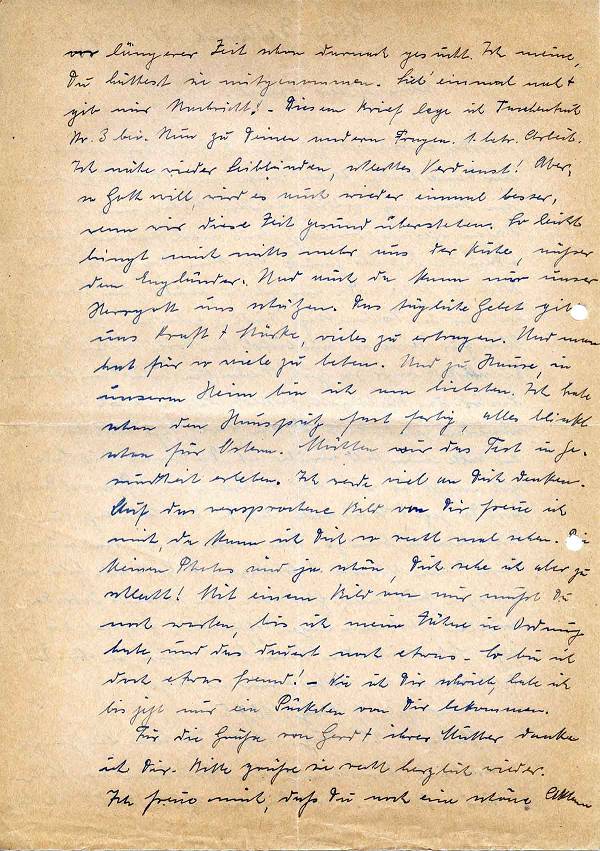 vor längerer Zeit schon darnach gesucht. Ich meine,
Du hättest sie mitgenommen. Sieh' einmal nach +
gib mir Nachricht! - Diesem Brief lege ich Taschentuch
Nr. 3 bei. Nun zu Deinen andern Fragen. 1. betr. Arbeit.
Ich nähe wieder Leibbinden, schlechtes Verdienst! Aber,
so Gott will, wird es auch wieder einmal besser,
wenn wir diese Zeit gesund überstehen. So leicht
bringt mich nichts mehr aus der Ruhe, außer
dem Engländer. Und auch da kann nur unser
Herrgott uns schützen. Das tägliche Gebet gibt
uns Kraft + Stärke, vieles zu ertragen. Und man
hat für so viele zu beten. Und zu Hause, in
unserem Heim bin ich am liebsten. Ich habe
schon den Hausputz fast fertig, alles blinkt
schon für Ostern. Möchten wir das Fest in Ge-
sundheit erleben. Ich werde viel an Dich denken.
Auf das versprochene Bild von Dir freue ich
mich, da kann ich Dich so recht mal sehen. Die
kleinen Photos sind ja schön, Dich sehe ich aber zu
schlecht! Mit einem Bild von mir mußt Du
noch warten, bis ich meine Zähne in Ordnung
habe, und das dauert noch etwas - So bin ich
doch etwas fremd! - Wie ich Dir schrieb, habe ich
bis jetzt nur ein Päckchen von Dir bekommen.
Für die Grüße von Gerd + ihrer Mutter danke
ich Dir. Bitte grüße sie recht herzlich wieder.
Ich freue mich, daß Du noch eine schöne